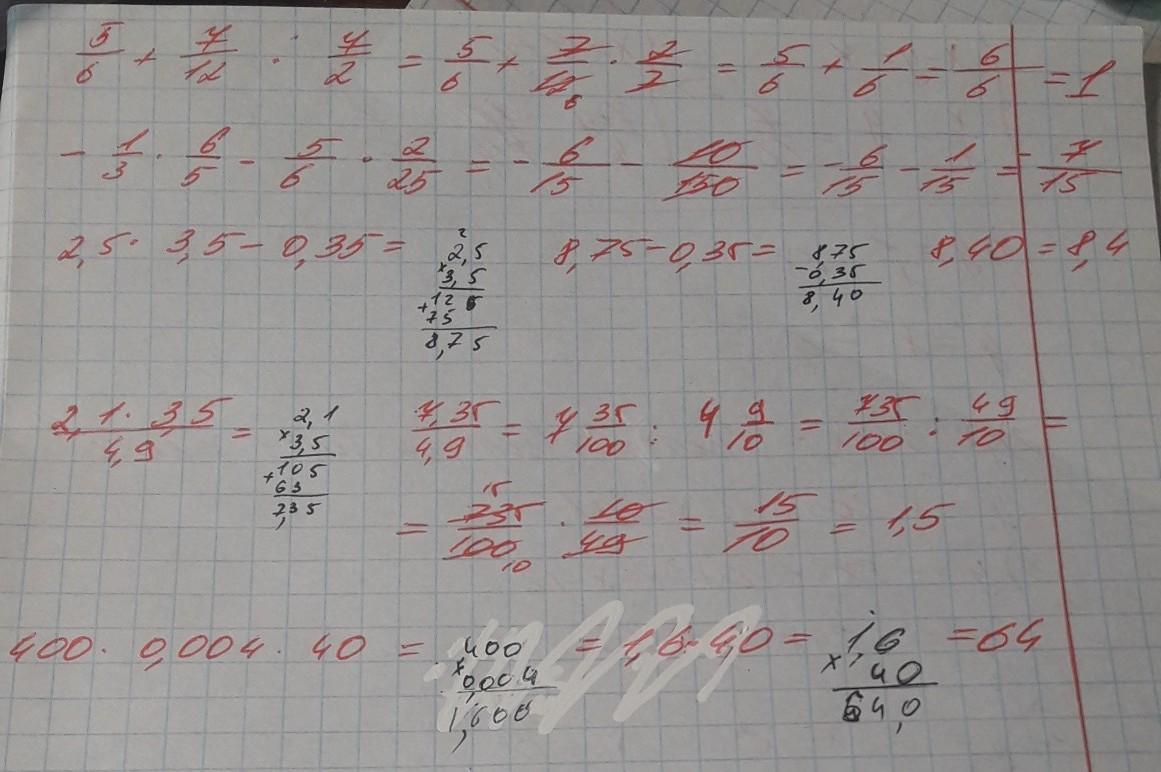 5/6 + 7/12 : 7/2 = 5/6 + 7/12 6 · 2/7 = 5/6 + 1/6 = 6/6 = 1
- 1/3 · 6/5 - 5/6 · 2/25 = - 6/15 - 10/150 = - 6/15 - 1/15 = - 7/15
2,5 · 3,5 - 0,35 = 2 2,5 × 3,5 + 125 75 8,75 8,75 - 0,35 = 8,75 - 0,35 8,40 8,40 = 8,4
2,1 · 3,5/4,9 = 2,1 × 3,5 + 105 63 7,35 7,35/4,9 = 7 35/100 : 4 9/10 = 735/100 : 49/10 =
= 15 735/100 10 · 10/49 = 15/10 = 1,5
400 · 0,004 · 40 = 400 × 0,004 1,600 = 1,6 · 40 = 1,6 × 40 64,0 = 64